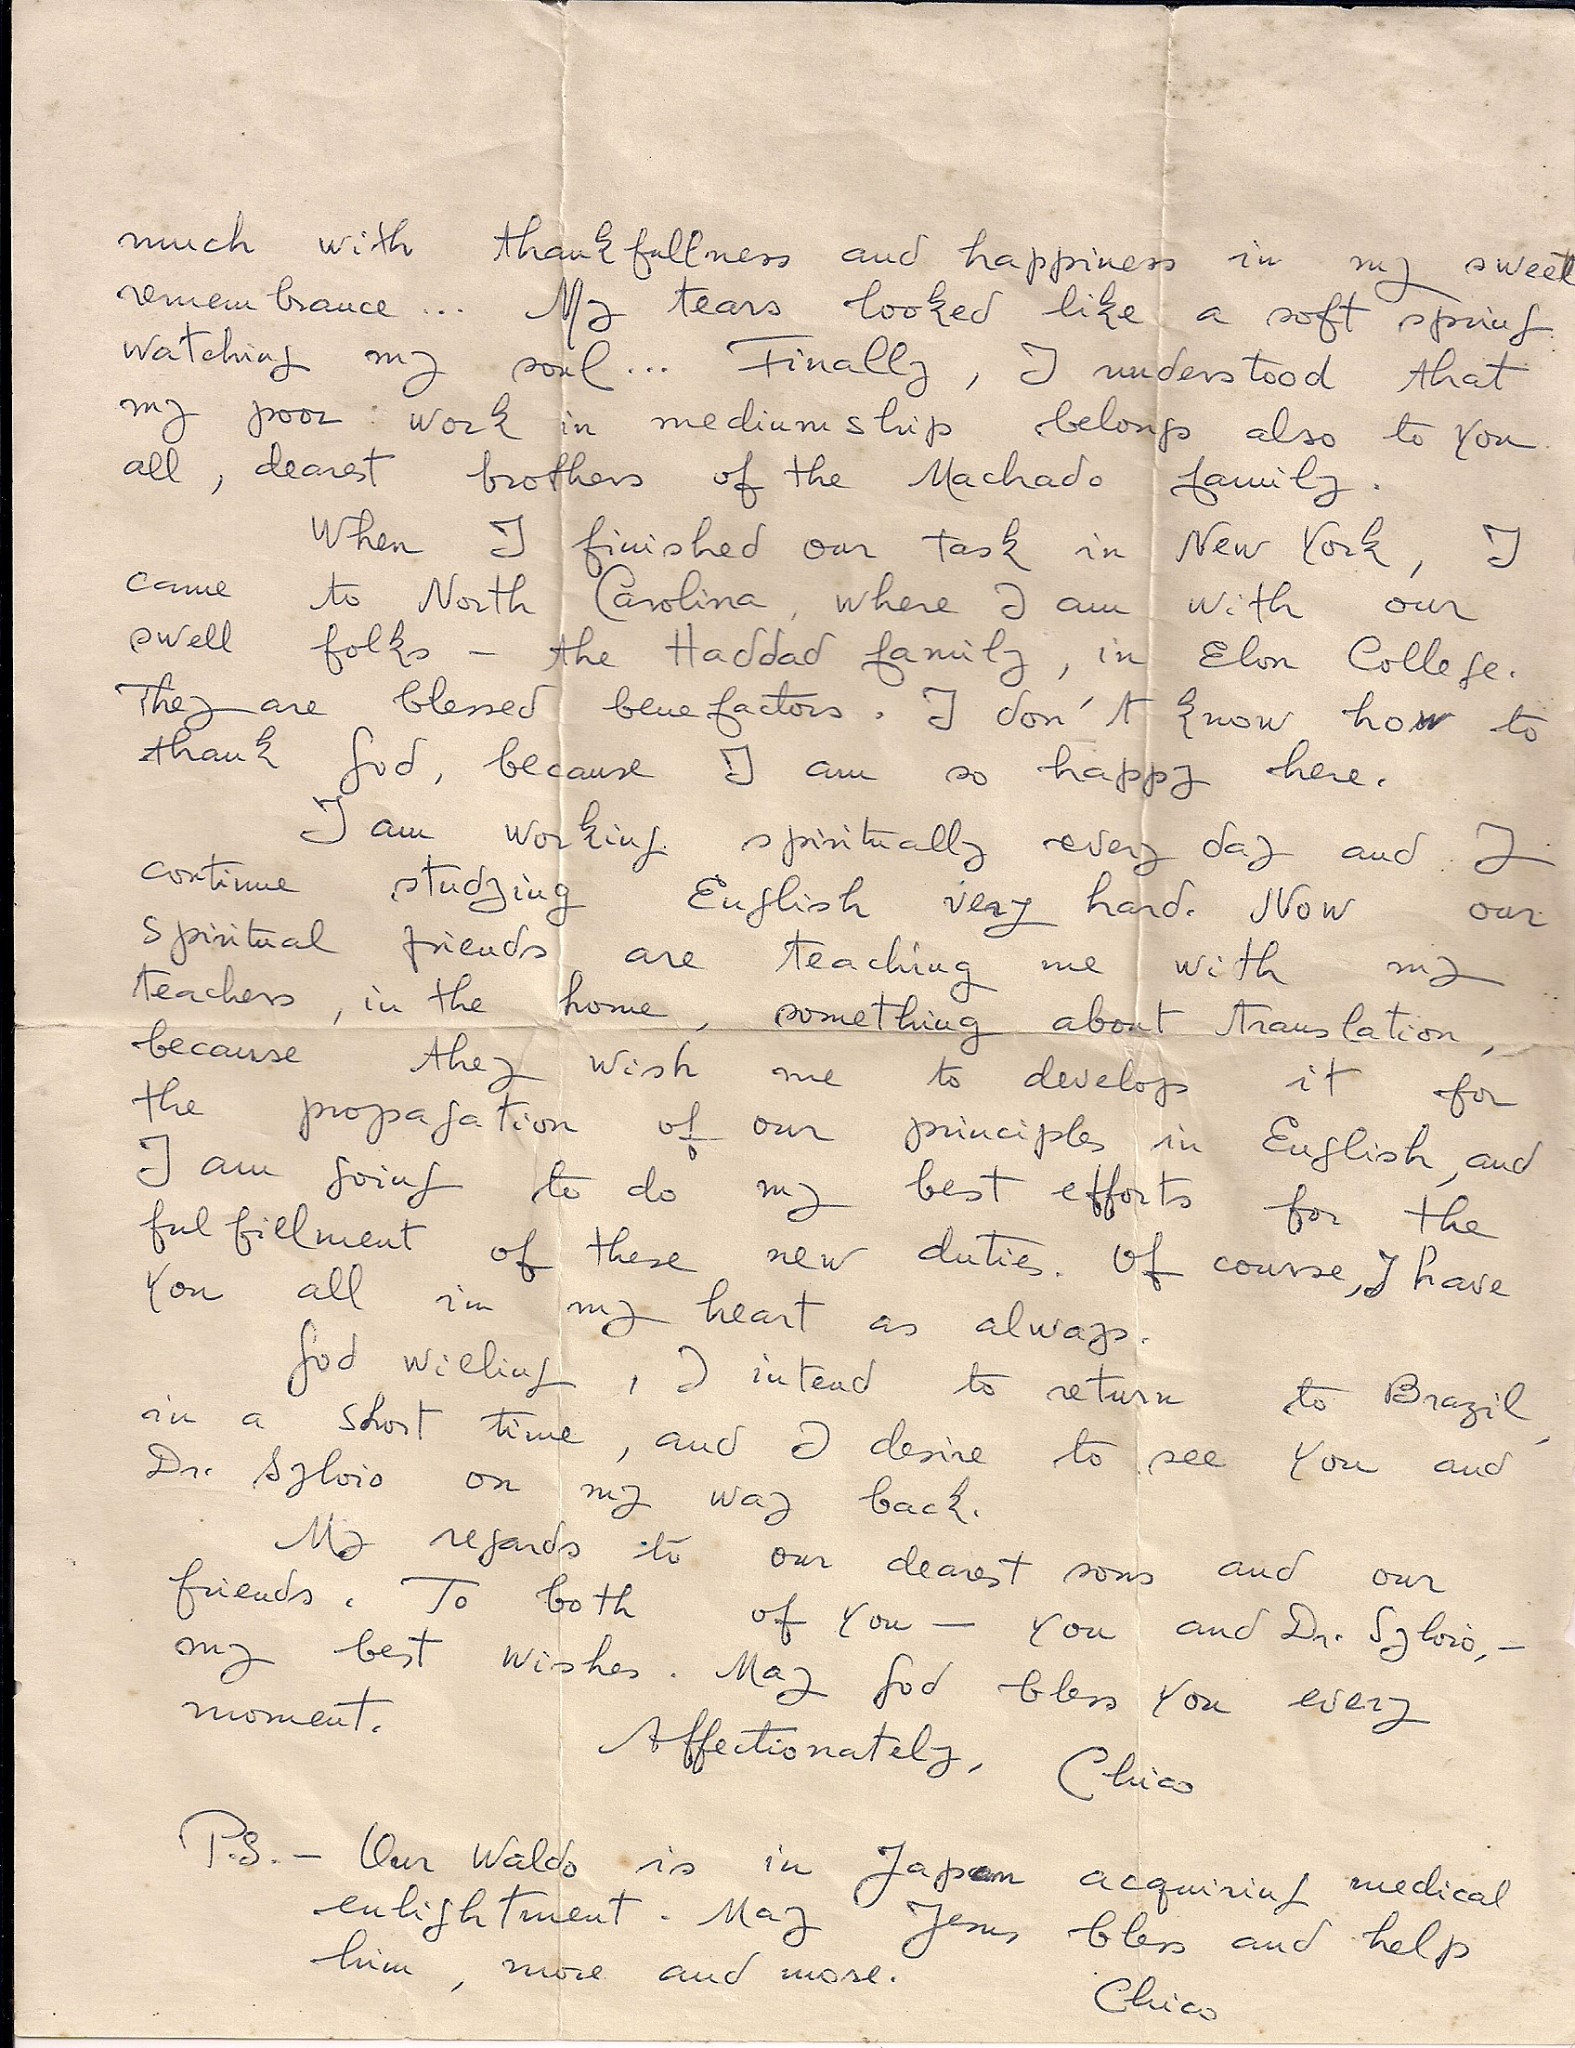 much with thankfullness and happiness in my sweet
remembrance... My tears looked like a soft spring
watching my soul... Finally, I understood that
my poor work in mediumship belongs also to you
all, dearest brothers of the Machado family.
When I finished our task in New York, I
came to North Carolina, where I am with our
swell folks - the Haddad family, in Elon College.
They are blessed benefactors. I don't know how to
thank God, because I am so happy here.
I am working spiritually every day and I
continue studying English very hard. Now our
spiritual friends are teaching me with my
teachers, in the home, something about translation,
because they wish me to develop it for
the propagation of our principles in English, and
I am going to do my best efforts for the
fulfillment of these new duties. Of course, I have
you all in my heart as always.
God willing, I intend to return to Brazil,
in a short time, and I desire to see you and
Dr. Sylvio on my way back.
My regards to our dearest sons and our
friends. To both of you - you and Dr. Sylvio, -
my best wishes. May God bless you every
moment.
Affectionately, Chico
P.S. - Our Waldo is in Japan acquiring medical
enlightment. May Jesus bless and help
him, more and more.
Chico